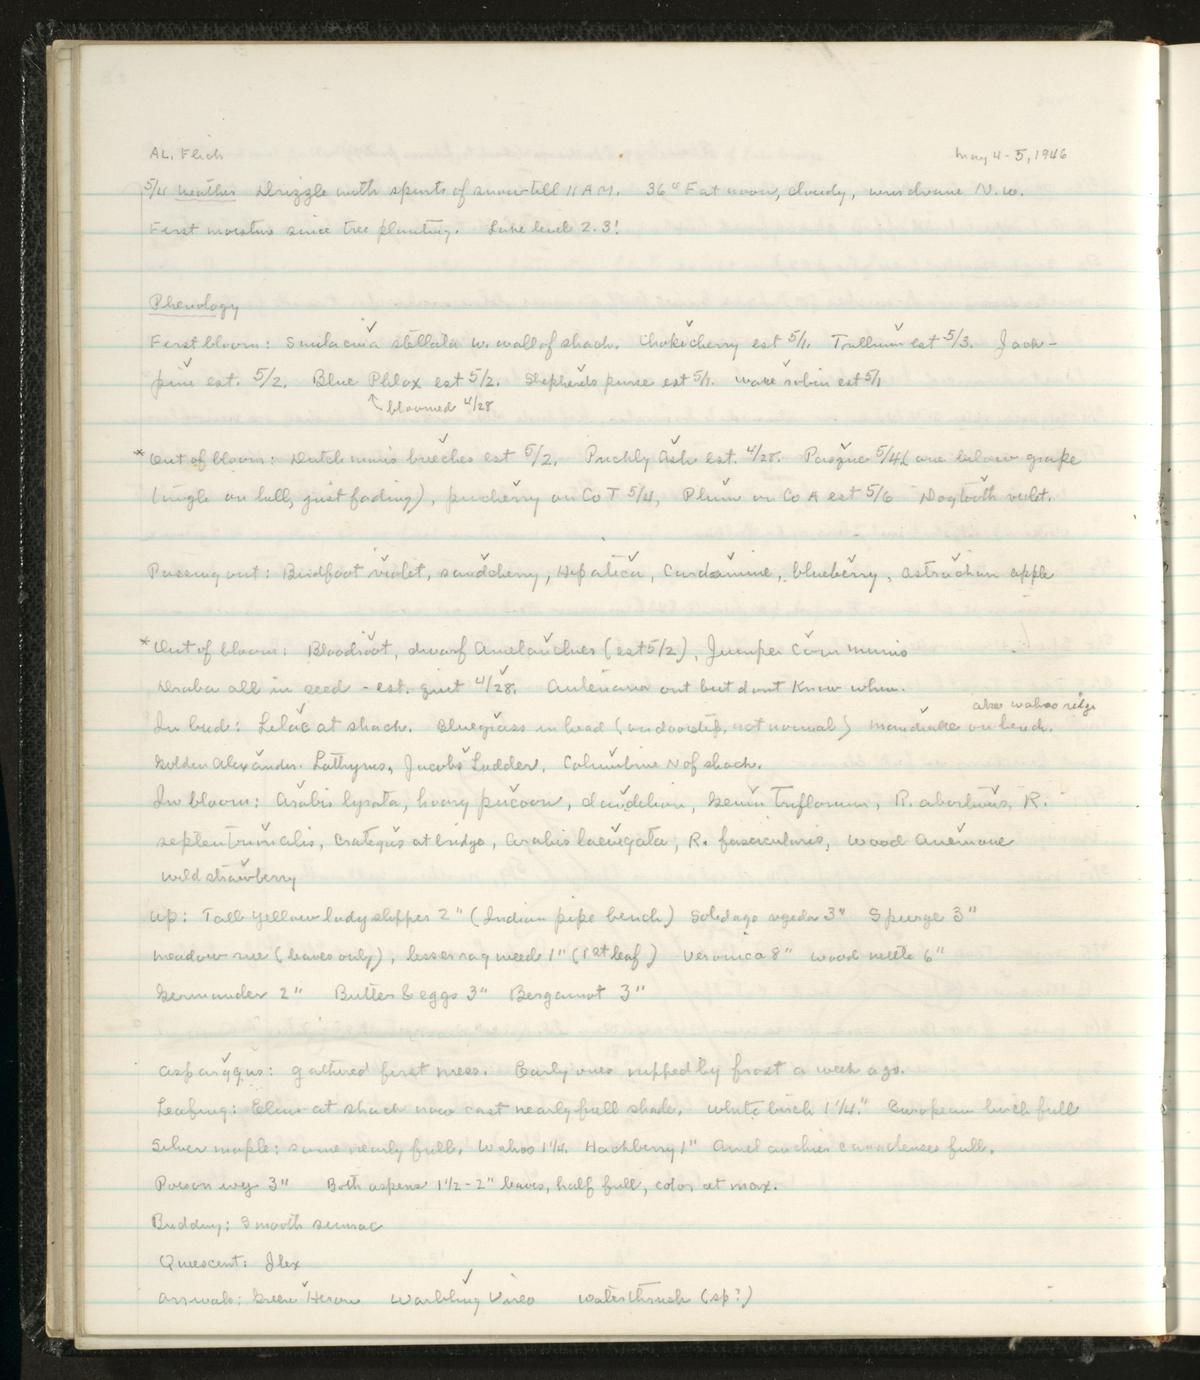 AL. Flick May 4-5, 1946
5/4 Weather Drizzle with spurts of snow till 11 A.M. 36° F at noon, cloudy, wind vane N.W.
First moisture since tree planting. Lake level 2.3!
Phenology
First bloom: Smilacina stellata w. wall of shack. Chokecherry est 5/1. Trillium est 5/3. Jack-
pine est. 5/2. Blue Phlox est 5/2. Shepherds purse est 5/1. wake robin est 5/1
bloomed 4/28
* Out of bloom: Dutchmans breeches est 5/2. Prickly Ash est. 4/28. Pasque 5/4 (one below grape
tangle on hill, just fading), pincherry on Co T 5/4, Plum on Co A est 5/6 Dogtooth violet.
Passing out: Birdfoot violet, sandcherry, Hepatica, Cardamine, blueberry, astrachan apple
* Out of bloom: Bloodroot, dwarf Amelanchier (est 5/2), Juniper Communis
Draba all in seed - est. quit 4/28. Antennaria out but dont know when.
also wahoo ridge
In bud: Lilac at shack. Bluegrass in head (on doorstep, not normal) mandrake on bench.
Golden Alexander. Lathyrus, Jacobs Ladder, Columbine N of shack.
In bloom: Arabis lyrata, hoary puccoon, dandelion, Geum triflorum, R. abortivus, R.
septentrionalis, Crategus at bridge, Arabis laevigata, R. fascicularis, wood anemone
wild strawberry
Up: Tall yellow ladyslipper 2" (Indian pipe bench) Solidago rigida 3" Spurge 3"
meadow rue (leaves only), lesser ragweed 1" (1st leaf) Veronica 8" wood nettle 6"
Germander 2" Butter & eggs 3" Bergamot 3"
Asparagus: gathered first mess. Early ones nipped by frost a week ago.
Leafing: Elms at shack now cast nearly full shade. White birch 1 1/4". European birch full
Silver maple: some nearly full. Wahoo 1 1/4. Hackberry 1" Amelanchier canadensis full.
Poison ivy 3" Both aspens 1 1/2 - 2" leaves, half full, color at max.
Budding: Smooth sumac
Quiescent: Ilex
Arrivals: Green Heron Warbling Vireo waterthrush (sp?)